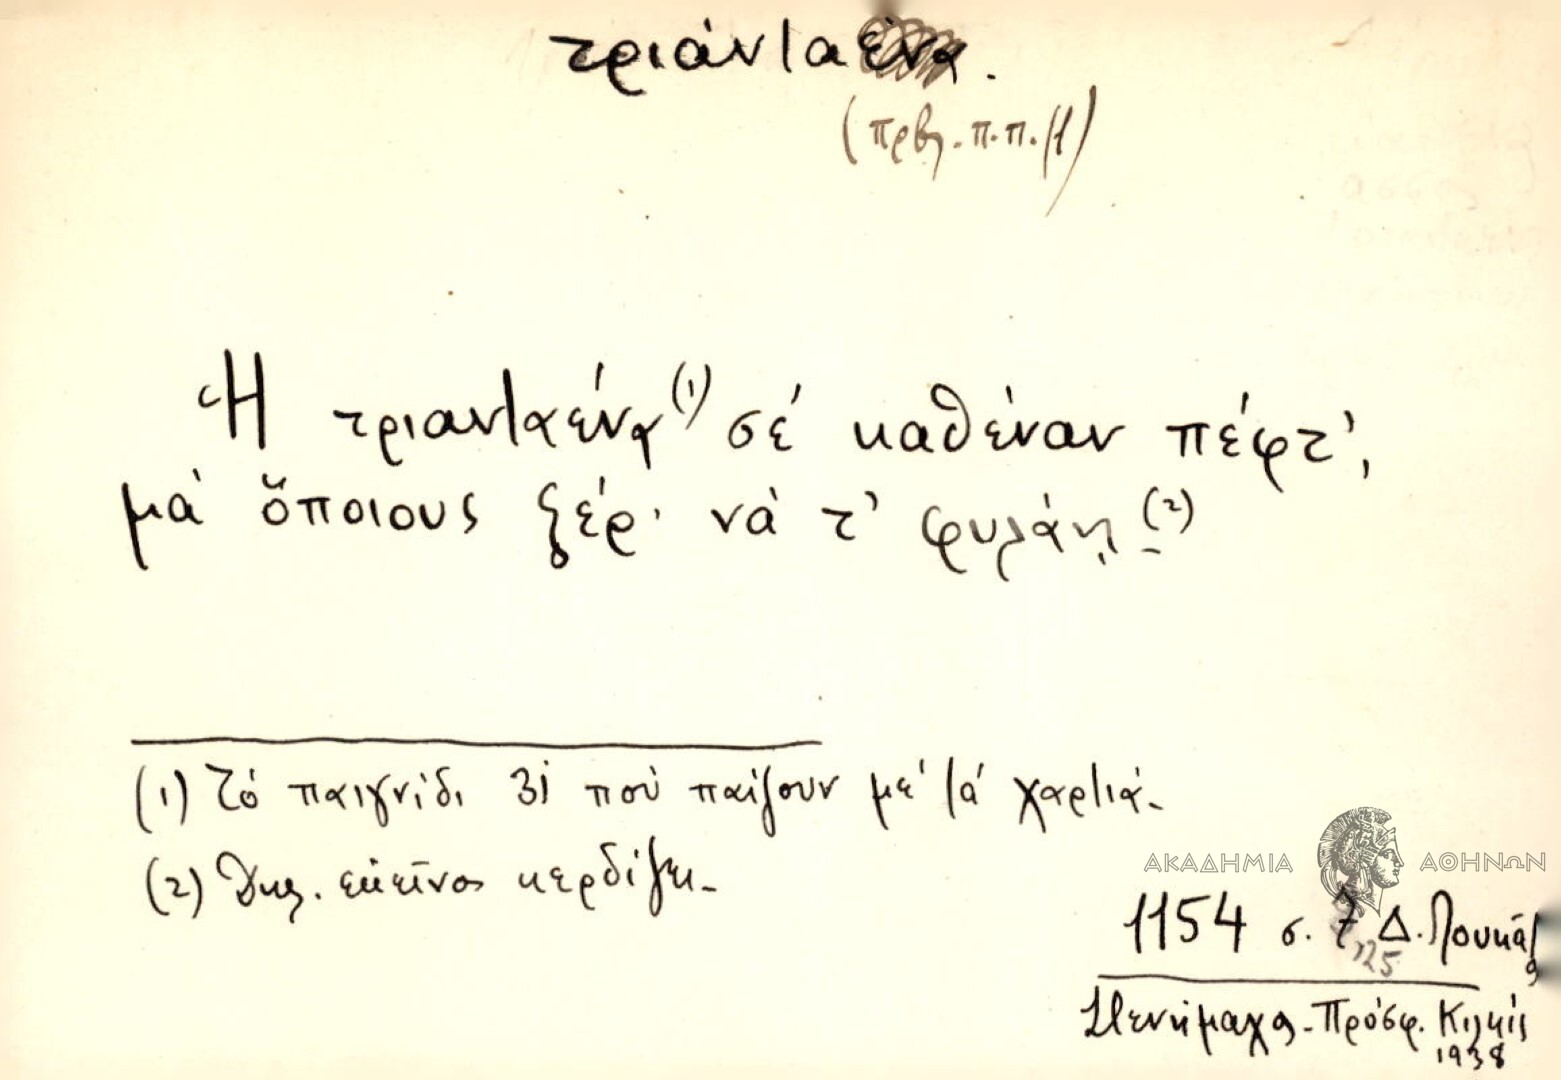 τριάντα ένα.
(πρβλ. π.π. 11)
Ἡ τριανταένα(1) σέ καθέναν πέφτ',
μά ὅποιους ξέρ' νά τ' φυλάη (2)
(1) Τό παιγνίδι 31 πού παίζουν μέ τά χαρτιά.
(2) Δηλ. εκείνος κερδίζει.
ΑΚΑΔΗΜΙΑ ΑΘΗΝΩΝ
1154 σ. 7 Δ. Λουκᾶς
125
Στενήμαχος - Πρόσφ. Κιλκίς
1938